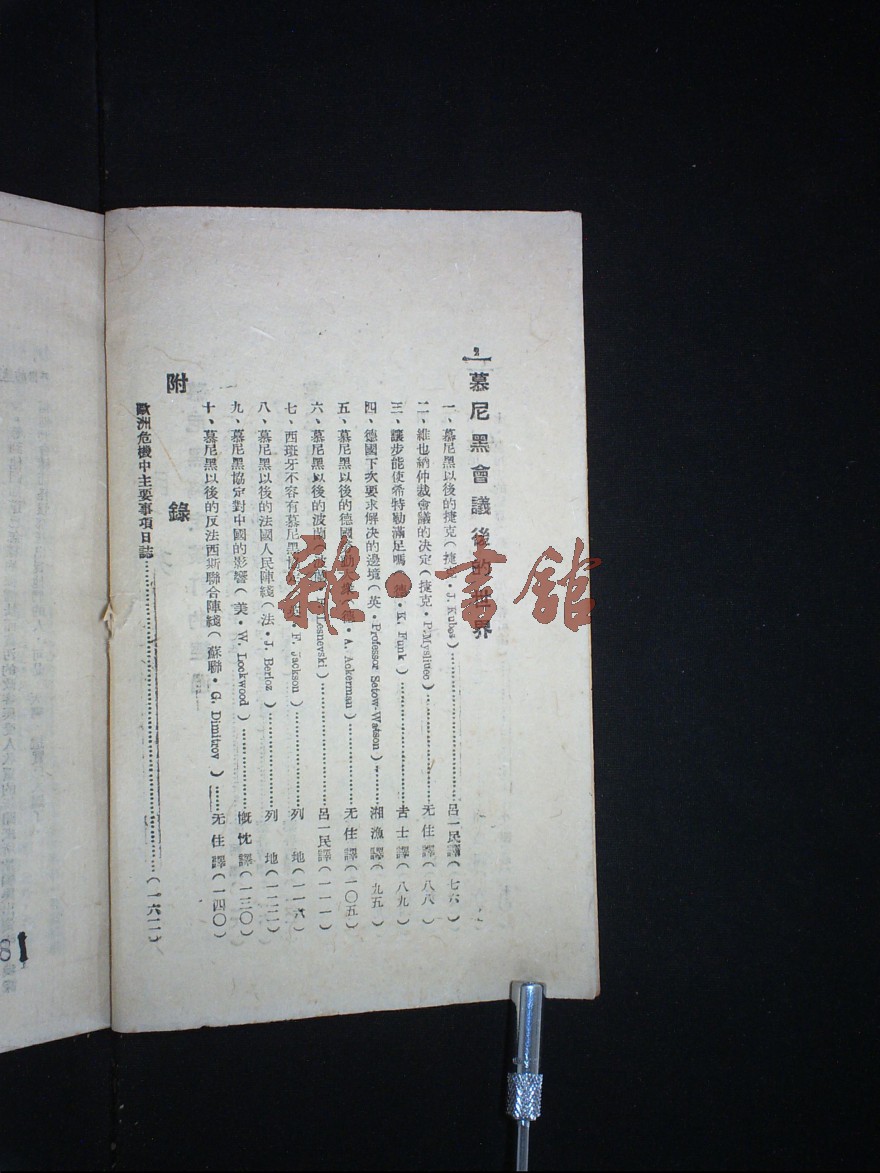 慕尼黑會議後的世界
一、慕尼黑以後的捷克(捷克·J. Kubes)……呂一民譯(七六)
二、維也納仲裁會議的决定(捷克·P. Myslivec)……无住譯(八八)
三、讓步能使希特勒滿足嗎(德·K. Funk)……吉士譯(八九)
四、德國下次要求解决的邊境(英·Professor Setow-Watson)……湘漁譯(九五)
五、慕尼黑以後的德國 A. Ackerman)……无住譯(一〇五)
六、慕尼黑以後的波蘭 Lesnevski)……呂一民譯(一一一)
七、西班牙不容有慕尼黑 F. Jackson)……列地(一一六)
八、慕尼黑以後的法國人民陣綫(法·J. Berloz)……列地(一二二)
九、慕尼黑協定對中國的影響(美·W. Lockwood)……慨忱譯(一三〇)
十、慕尼黑以後的反法西斯聯合陣綫(蘇聯·G. Dimitrov)……无住譯(一四〇)
附錄
歐洲危機中主要事項日誌……(一六二)
雜·書館